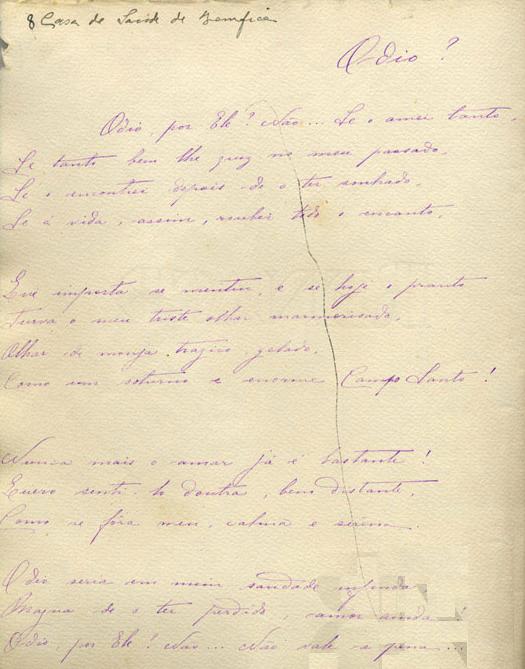 8 Casa de Saúde de Bemfica
Odio?
Odio por Ele? Não... Se o amei tanto,
Se tanto bem lhe quiz no meu passado,
Se o encontrei depois de o ter sonhado,
Se á vida, assim, roubei todo o encanto,
Que importa se mentiu, e se hoje o pranto
Turva o meu triste olhar marmorisado,
Olhar de monja, tragico gelado,
Como um soturno e enorme Campo Santo!
Nunca mais o amar já é bastante!
Quero senti-lo doutra, bem distante,
Como se fôra meu, calma e serena.
Odio seria em mim saudade infinda
Magua de o ter perdido, amor ainda!
Odio por Ele? Não... Não vale a pena...